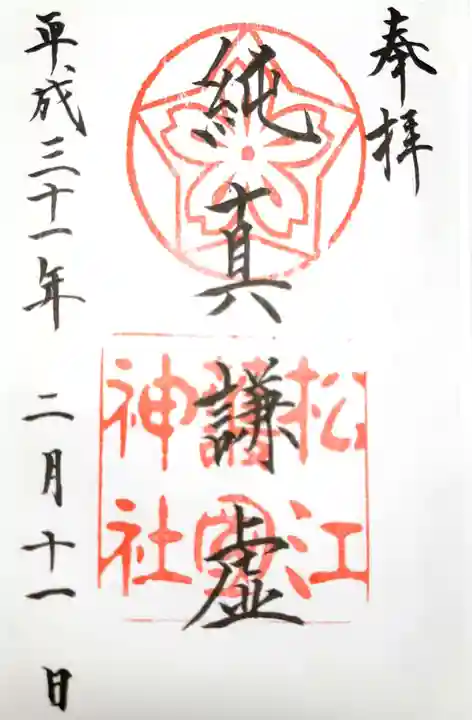 奉拝
純真謙虚
松江
護國
神社
平成三十一年二月十一日